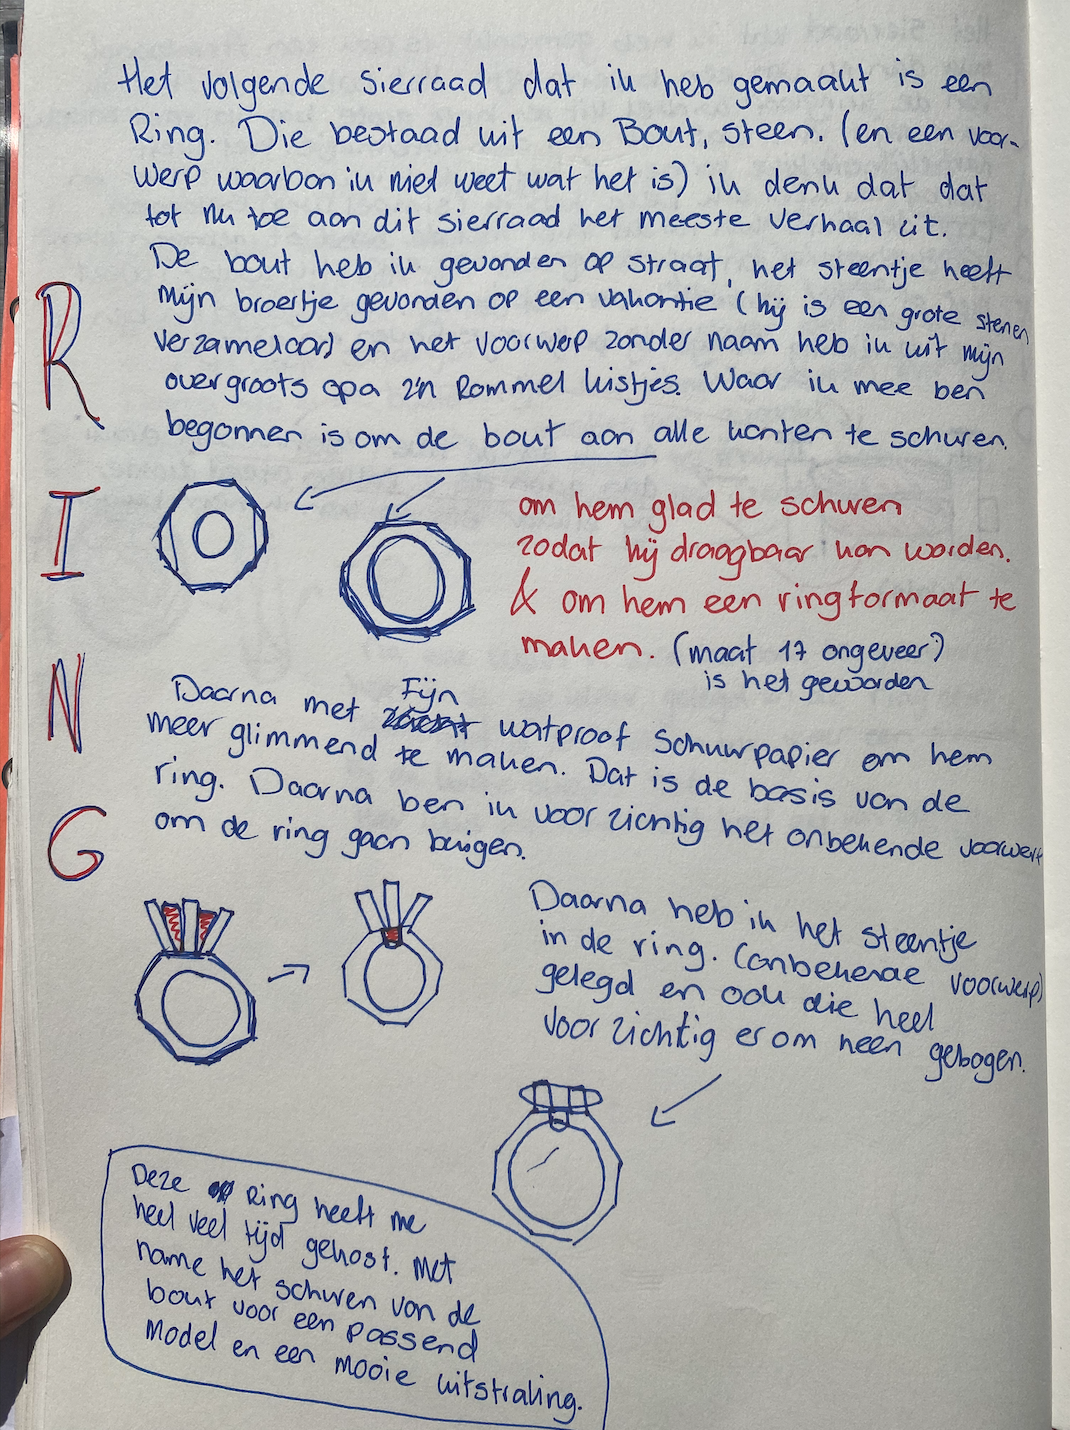 Het volgende sierraad dat ik heb gemaakt is een
Ring. Die bestaad uit een Bout, steen. (en een voor-
werp waarban ik niet weet wat het is) ik denk dat dat
tot nu toe aan dit sierraad het meeste verhaal zit.
De bout heb ik gevonden op straat, het steentje heeft
mijn broertje gevonden op een vakantie (hij is een grote stenen
verzamelaar) en het voorwerp zonder naam heb ik uit mijn
overgroots opa z'n Rommel kistjes. Waar ik mee ben
begonnen is om de bout aan alle kanten te schuren.
R
I
N
G
om hem glad te schuren
zodat hij draagbaar kan worden.
& om hem een ringformaat te
maken. (maat 17 ongeveer)
is het geworden
Fijn
Daarna met watproof schuurpapier om hem
meer glimmend te maken. Dat is de basis van de
ring. Daarna ben ik voorzichtig het onbekende voorwerp
om de ring gaan buigen.
Daarna heb ik het steentje
in de ring. (onbekende voorwerp)
gelegd en ook die heel
voorzichtig er om heen gebogen.
Deze Ring heeft me
heel veel tijd gekost. Met
name het schuren van de
bout voor een passend
model en een mooie uitstraling.